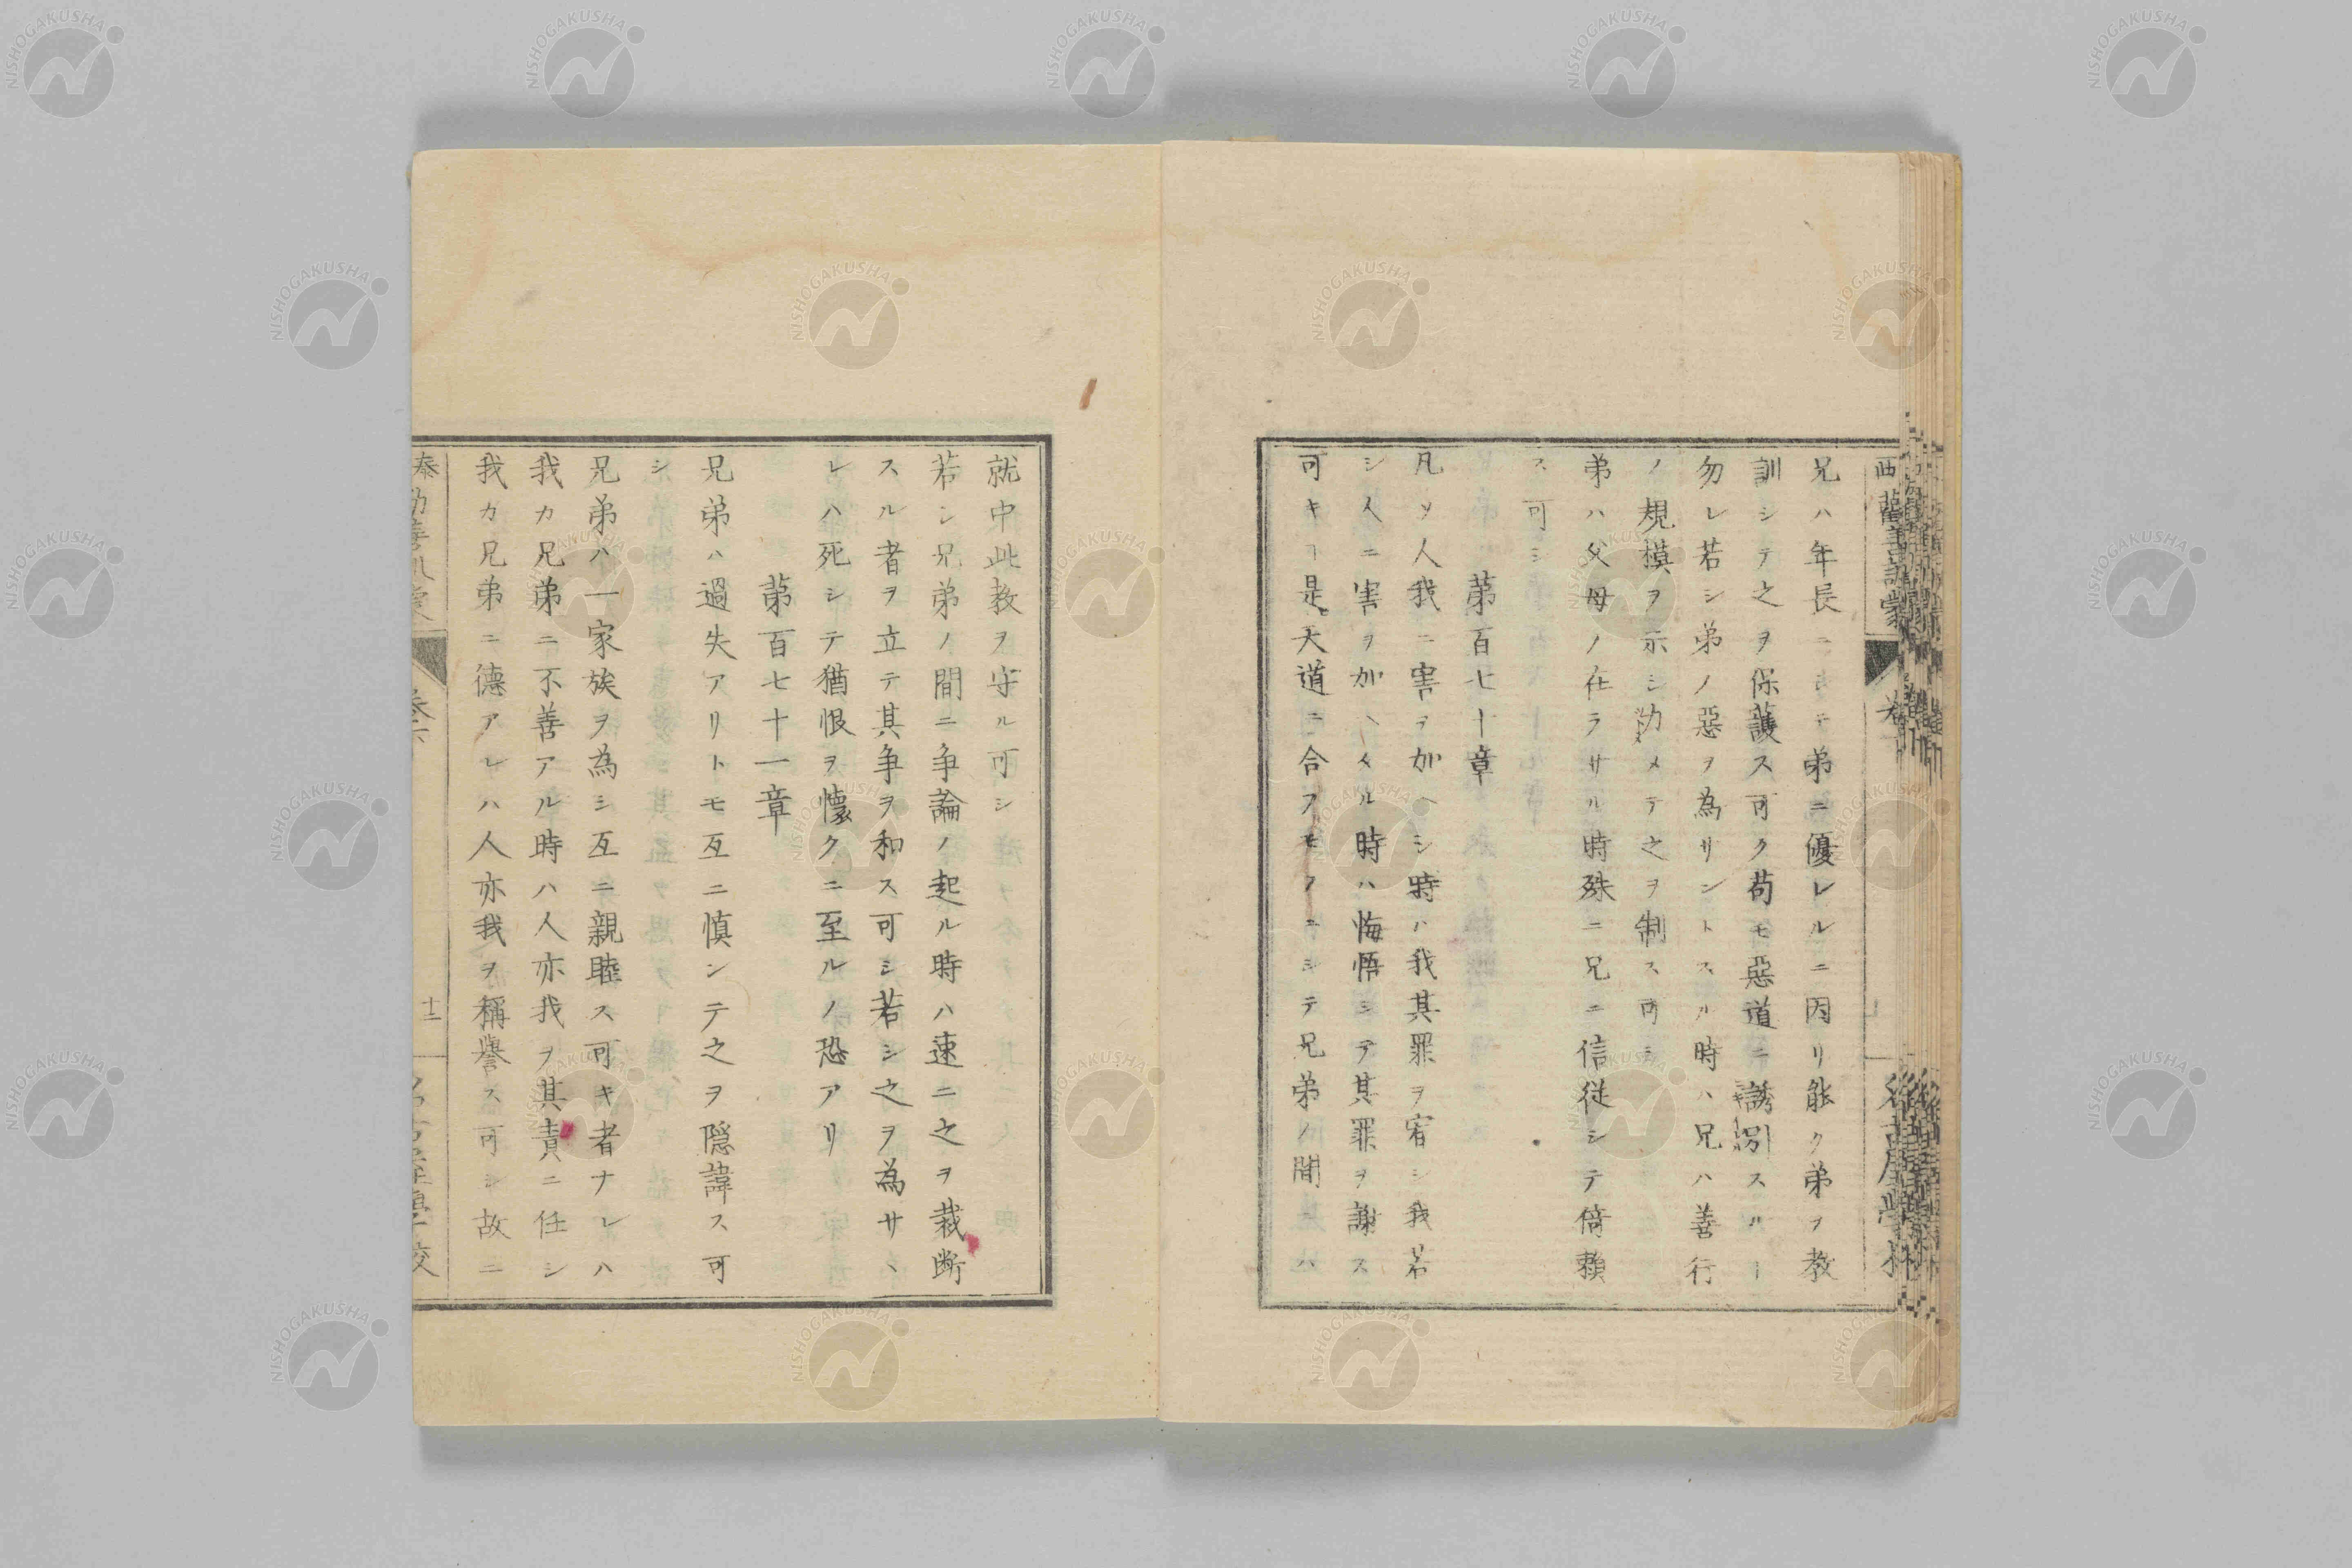 兄ハ年長ニシテ弟ニ優レルニ因リ能ク弟ヲ教
訓シテ之ヲ保護ス可ク苟モ惡道ニ誘引スルヿ
勿レ若シ弟ノ惡ヲ為サントスル時ハ兄ハ善行
ノ規模ヲ示シ力メテ之ヲ制ス可シ
弟ハ父母ノ在ラサル時殊ニ兄ニ信従シテ倚賴
ス可シ
第百七十章
凡ソ人我ニ害ヲ加ヘシ時ハ我其罪ヲ宥シ我若
シ人ニ害ヲ加ヘタル時ハ悔悟シテ其罪ヲ謝ス
可キヿ是天道ニ合フモノニシテ兄弟ノ間ハ
就中此教ヲ守ル可シ
若シ兄弟ノ間ニ争論ノ起ル時ハ速ニ之ヲ裁断
スル者ヲ立テ其争ヲ和ス可シ若シ之ヲ為サヽ
レハ死シテ猶恨ヲ懐クニ至ルノ恐アリ
第百七十一章
兄弟ハ過失アリトモ互ニ慎ンテ之ヲ隠諱ス可
シ
兄弟ハ一家族ヲ為シ互ニ親睦ス可キ者ナレハ
我カ兄弟ニ不善アル時ハ人亦我ヲ其責ニ任シ
我カ兄弟ニ德アレハ人亦我ヲ稱譽ス可シ故ニ
十二
NISHOGAKUSHA